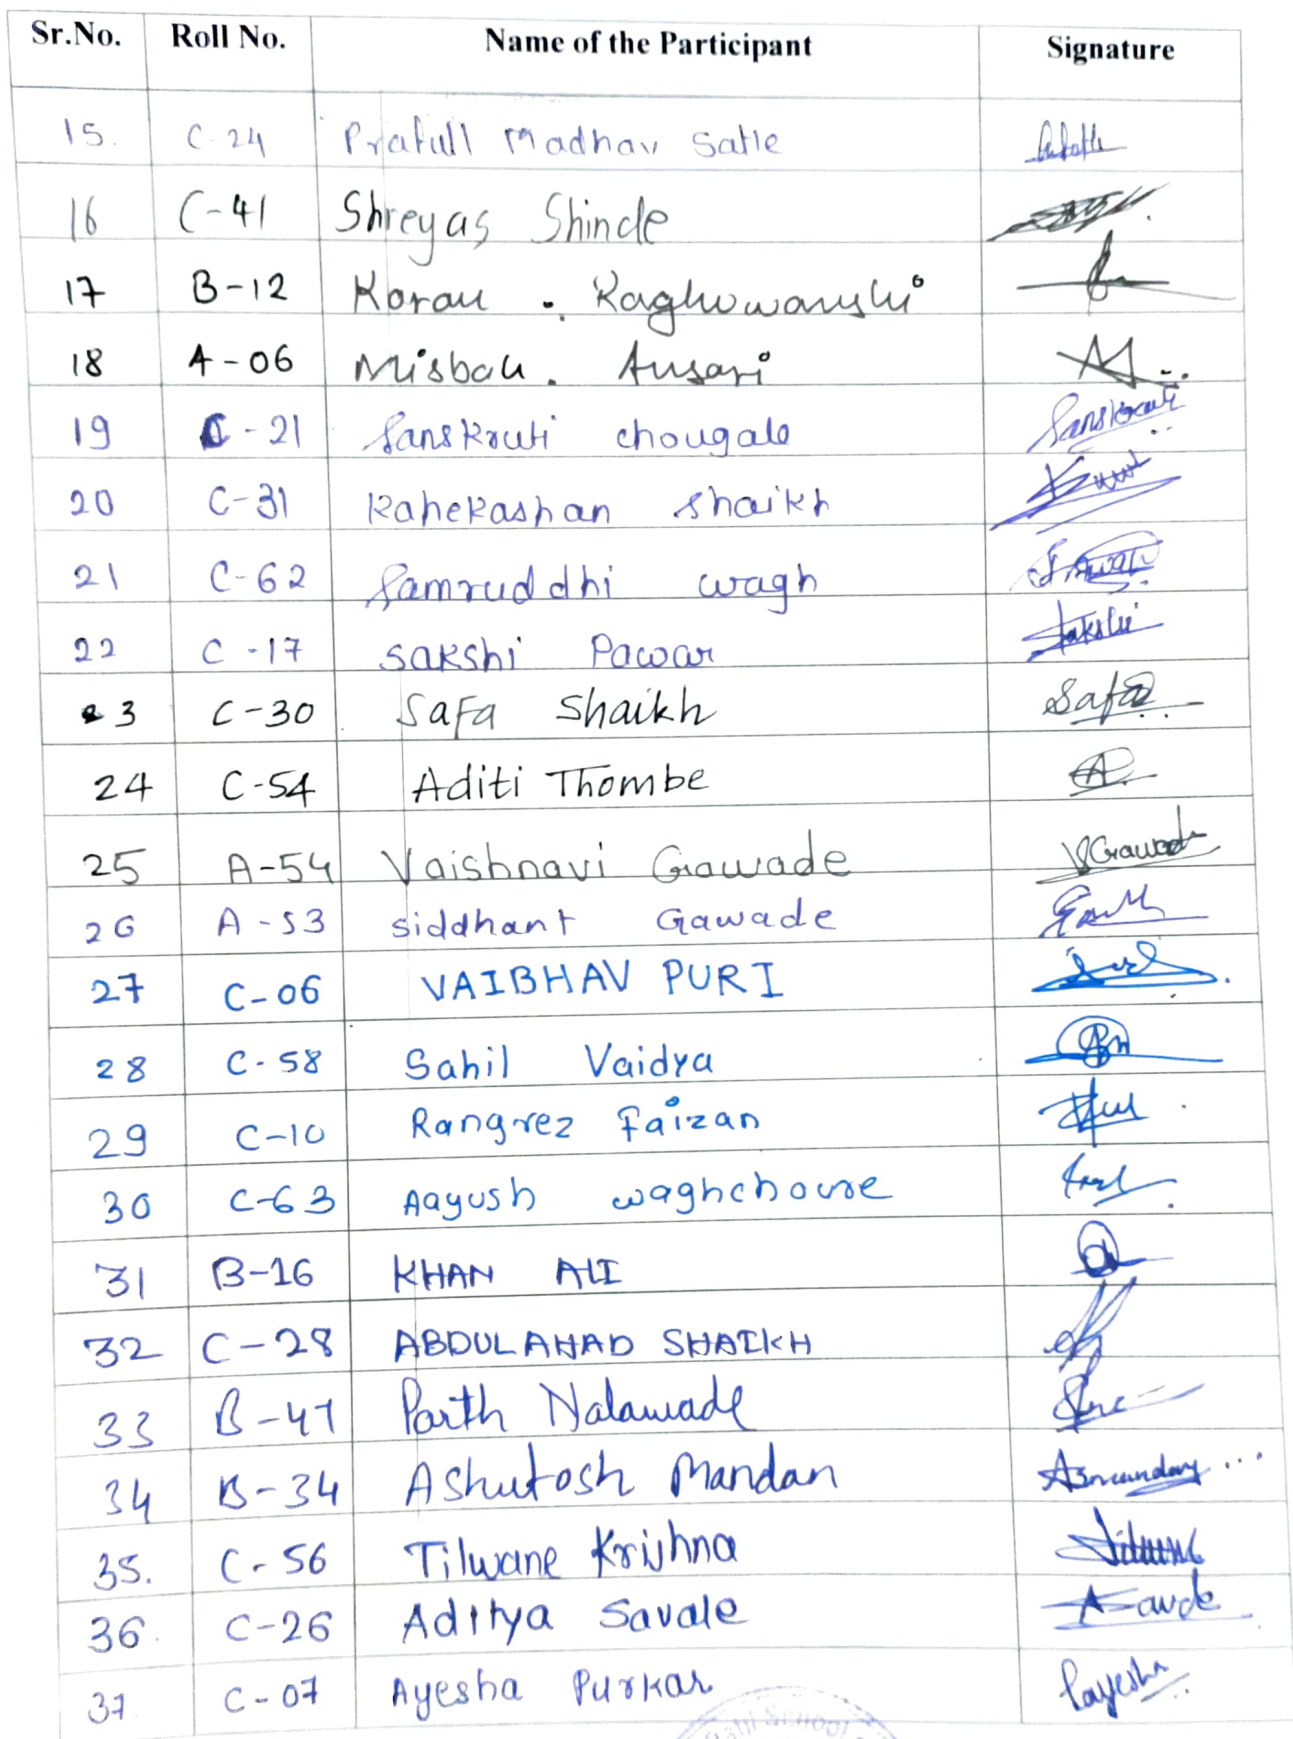 Sr.No. Roll No. Name of the Participant Signature
15. C-24 Prafull Madhav Satle
16 C-41 Shreyas Shinde
17 B-12 Karan . Raghuwanshi
18 A-06 Misbah . Ansari
19 C-21 Sanskruti chougale Sanskruti
20 C-31 Kahekashan Shaikh
21 C-62 Samruddhi wagh
22 C-17 Sakshi Pawar Sakshi
23 C-30 Safa Shaikh Safa
24 C-54 Aditi Thombe
25 A-54 Vaishnavi Gawade VGawade
26 A-53 siddhant Gawade
27 C-06 VAIBHAV PURI
28 C-58 Sahil Vaidya
29 C-10 Rangrez Faizan
30 C-63 Aayush waghchoure
31 B-16 KHAN ALI
32 C-28 ABDULAHAD SHAIKH
33 B-47 Parth Nalawade
34 B-34 Ashutosh Mandan
35. C-56 Tilwane Krishna
36. C-26 Aditya Savale
37. C-07 Ayesha Purkar Payesha
School